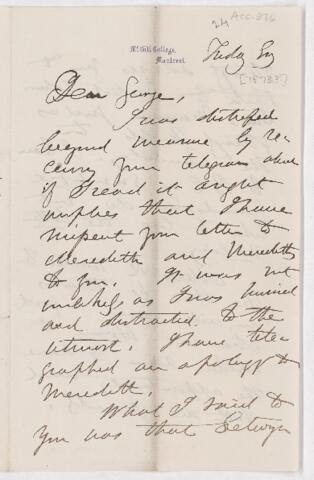 24 ACC. 876
McGill College,
Montreal.
Friday Evg
[1873?]
Dear George,
I was distressed
beyond measure by re-
ceiving your telegram which
if I read it aright
implies that I have
missent your letter to
Meredith and Meredith's
to you. It was not
unlikely as I was hurried
and distracted to the
utmost. I have tele-
graphed an apology to
Meredith.
What I said to
you was that Selwyn